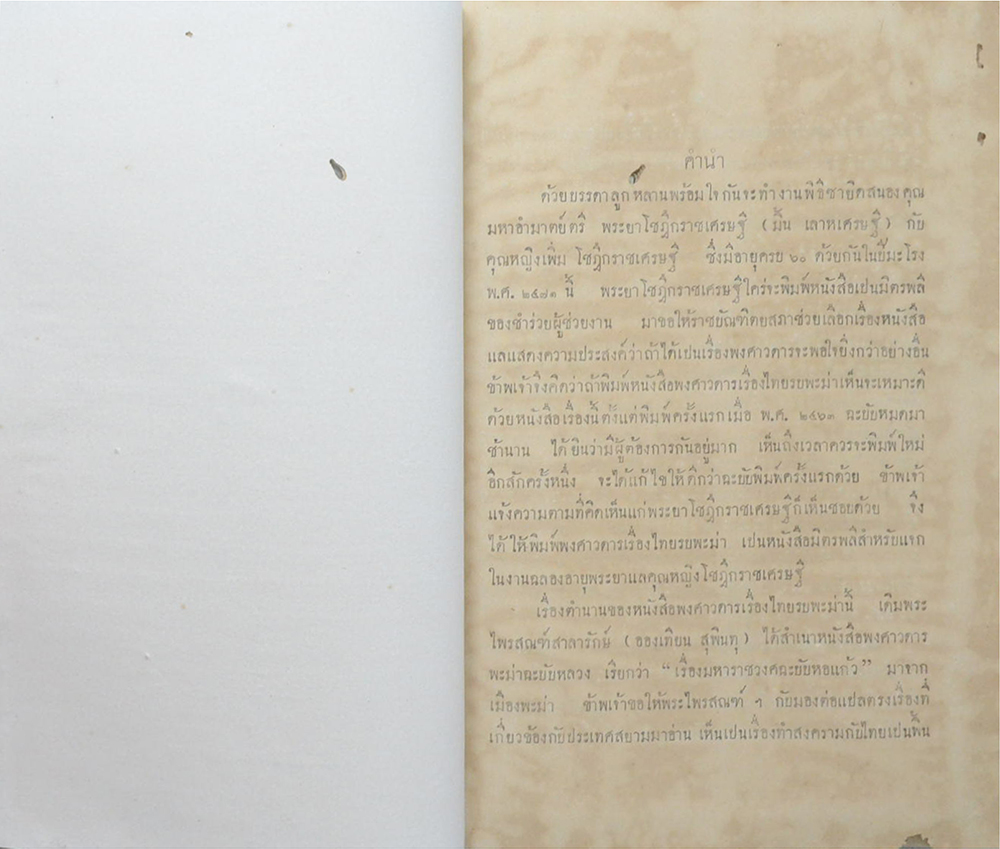 คำนำ
ด้วยบรรดาลูกหลานพร้อมใจกันจะทำงานพิธีซายิดสนองคุณ
มหาอำมาตย์ตรี พระยาโชฎึกราชเศรษฐี (มั้น เลาหเศรษฐี) กับ
คุณหญิงเพิ่ม โชฎึกราชเศรษฐี ซึ่งมีอายุครบ ๖๐ ด้วยกันในปีมะโรง
พ.ศ. ๒๔๗๑ นี้ พระยาโชฎึกราชเศรษฐีใคร่จะพิมพ์หนังสือเปนมิตรพลี
ของชำร่วยผู้ช่วยงาน มาขอให้ราชบัณฑิตยสภาช่วยเลือกเรื่องหนังสือ
แลแสดงความประสงค์ว่าถ้าได้เปนเรื่องพงศาวดารจะพอใจยิ่งกว่าอย่างอื่น
ข้าพเจ้าจึงคิดว่าถ้าพิมพ์หนังสือพงศาวดารเรื่องไทยรบพะม่าเห็นจะเหมาะดี
ด้วยหนังสือเรื่องนี้ตั้งแต่พิมพ์ครั้งแรกเมื่อ พ.ศ. ๒๔๖๓ ฉะบับหมดมา
ช้านาน ได้ยินว่ามีผู้ต้องการกันอยู่มาก เห็นถึงเวลาควรจะพิมพ์ใหม่
อีกสักครั้งหนึ่ง จะได้แก้ไขให้ดีกว่าฉะบับพิมพ์ครั้งแรกด้วย ข้าพเจ้า
แจ้งความตามที่คิดเห็นแก่พระยาโชฎึกราชเศรษฐีก็เห็นชอบด้วย จึง
ได้ให้พิมพ์พงศาวดารเรื่องไทยรบพะม่า เปนหนังสือมิตรพลีสำหรับแจก
ในงานฉลองอายุพระยาแลคุณหญิงโชฎึกราชเศรษฐี
เรื่องตำนานของหนังสือพงศาวดารเรื่องไทยรบพะม่านี้ เดิมพระ
ไพรสณฑ์สาลารักษ์ (อองเทียน สุพินทุ) ได้สำเนาหนังสือพงศาวดาร
พะม่าฉะบับหลวง เรียกว่า “เรื่องมหาราชวงศฉะบับหอแก้ว” มาจาก
เมืองพะม่า ข้าพเจ้าขอให้พระไพรสณฑ์ ฯ กับมองต่อแปลตรงเรื่องที่
เกี่ยวข้องกับประเทศสยามมาอ่าน เห็นเปนเรื่องทำสงครามกับไทยเปนพื้น